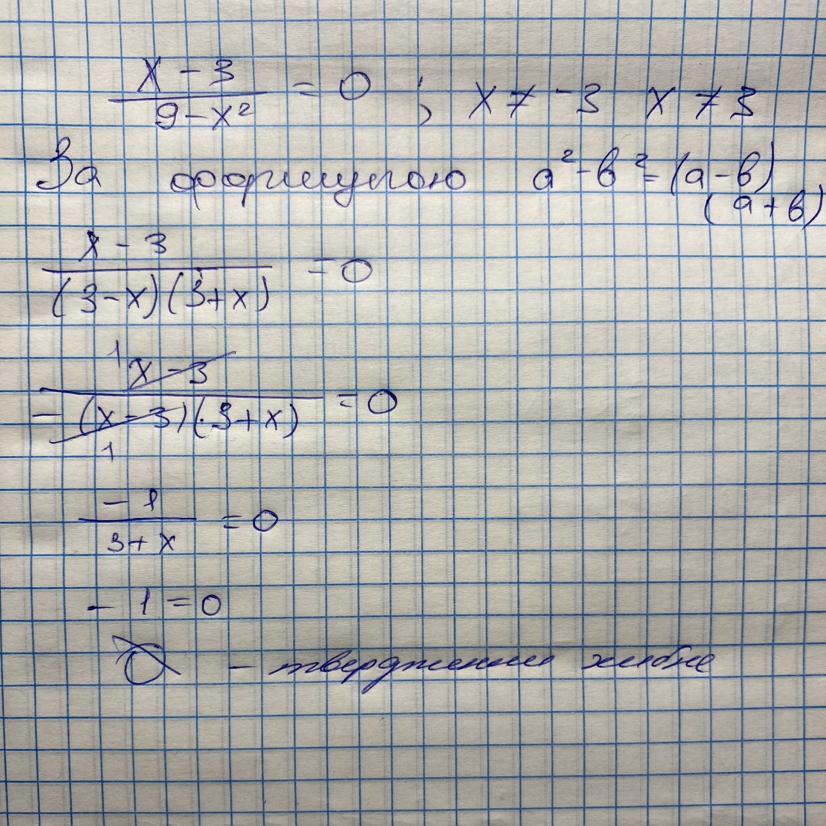 x - 3 / 9 - x² = 0 ; x ≠ -3 x ≠ 3
За формулою a² - b² = (a - b)
(a + b)
x - 3 / (3 - x)(3 + x) = 0
1 x - 3 / - (x - 3)(3 + x) 1 = 0
-1 / 3 + x = 0
- 1 = 0
∅ - твердження хибне